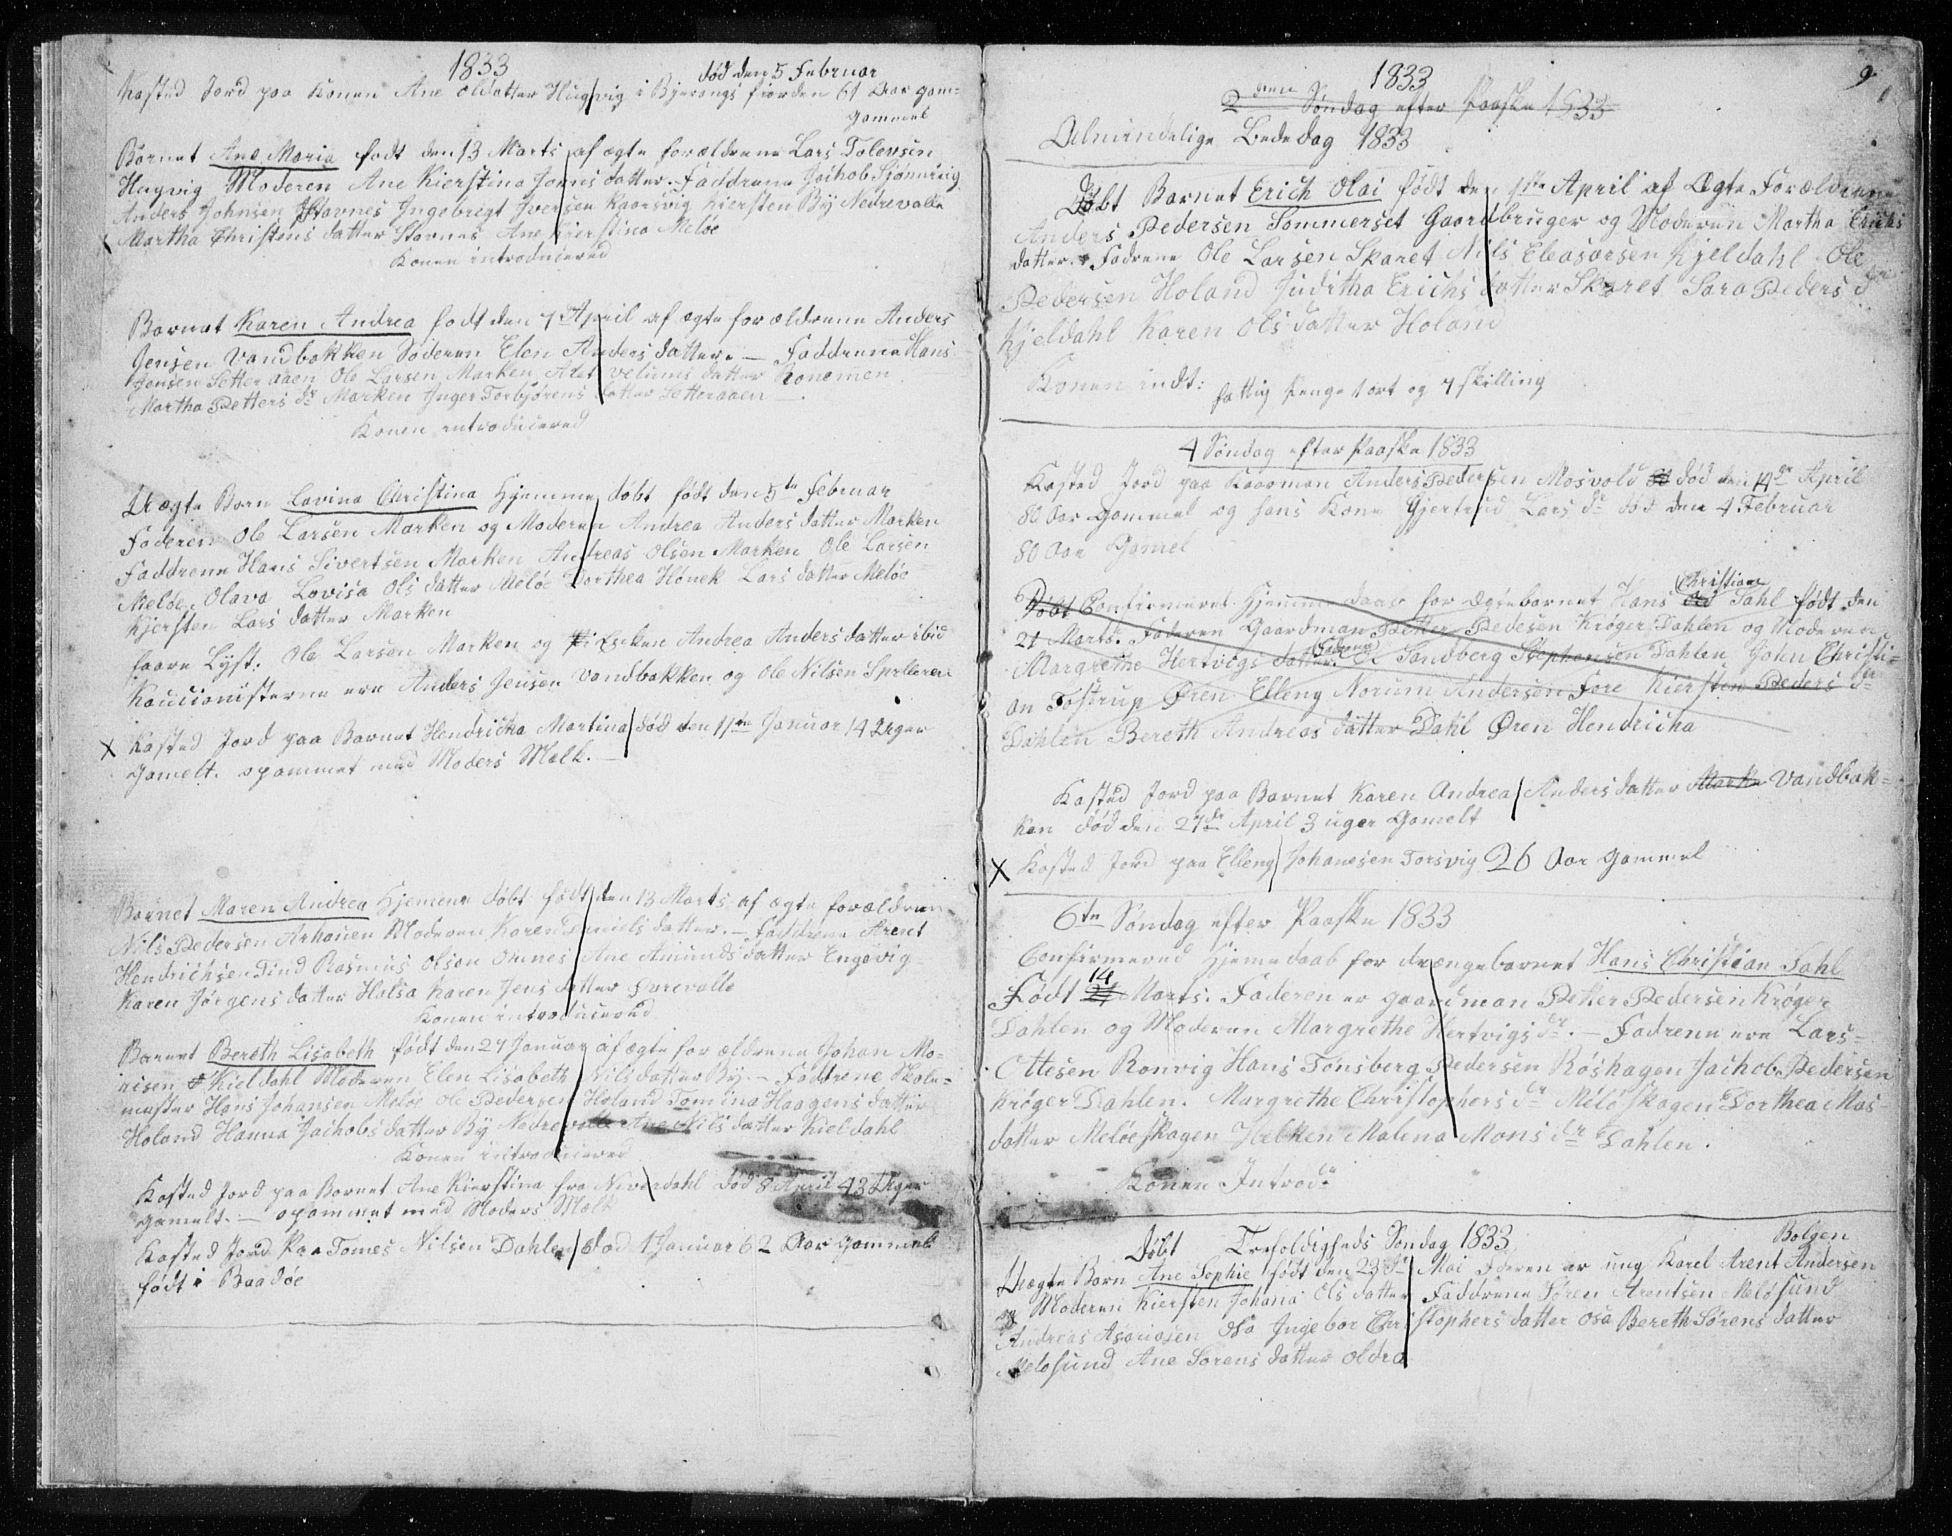 1833
død den 5 Februar
Kasted Jord paa Konen Ane Olsdatter Hugvig i Bjerangsfiorden 61 Aar gam=
gammel
Barnet Ane Maria født den 13 Marts af ægte forældrene Lars Tolevsen
Hugvig Moderen Ane Kierstina Jonsdatter. Faddrene Jachob
Anders Johnsen Stavnes Ingebrigt Iversen Kaarsvig Kiersten By Nedrevalla
Martha Christens datter Stavnes Ane Kierstina Meløe
Konen introducered
Barnet Karen Andrea født den 7 April af ægte forældrene Anders
Jensen Vandbakken Moderen Elen Anders datter. — Faddrene Hans
Jensen Setteraaen Ole Larsen Marken datter
Martha Petters dr Marken Inger Torbjørens datter Setteraaen
Konen introducered
Uægte Barn Lavina Christina Hjemme døbt født den 5te Februar
Faderen Ole Larsen Marken og Moderen Andrea Anders datter Marken
Faddrene Hans Sivertsen Marken Andreas Olsen Marken Ole Larsen
Meløe Olava Lovisa Ols datter Meløe Dorthea Lars datter Meløe
Kjersten Lars datter Marken
Ole Larsen Marken og Andrea Anders datter ibid
Kaucionisterne ere Anders Jensen Vandbakken og Ole Nilsen
X Kasted Jord paa Barnet Hendricha Martina død den 11te Januar 14 Uger
Gamelt. opammet med Moders Melk. —
Barnet Maren Andrea Hjemme døbt født den 13 Marts af ægte forældren
Nils Pedersen Arhouen Moderen Karen Daniels datter. — Faddrene Arent
Hendrichsen Tind Rasmus Olsen Ornes Ane Amunds datter Engevig
Karen Jørgens datter Halsa Karen Jens datter
Konen introducered
Barnet Bereth Lisabeth født den 27 Januar af ægte forældrene Johan Mo=
nisen Kieldahl Moderen Elen Lisabeth Nilsdatter By. — Faddrene Skole=
mester Hans Johansen Meløe Ole Pedersen Holand Tomina Haagens datter
Holand Hanna Jachobs datter By Nedrevalle Ane Nils datter Kieldahl
Konen introducered
Kasted Jord paa Barnet Ane Kierstina fra Neverdahl død 8 April 43 Uger
Gamelt. — opammet med Moders Melk
Kasted Jord paa Tomes Nilsen Dahlen død 1 Januar 62 Aar Gammel
født i Baadøe
9
1833
2den Søndag efter Paaske 1833
Almindelige Bededag 1833
Døbt Barnet Erich Olai født den 1ste April af Ægte Forældrene
Anders Pedersen Sommerset Gaardbruger og Moderen Martha Erichs
datter. Fadrene Ole Larsen Skaret Nils Eleasarsen Kjeldahl Ole
Pedersen Holand Juditha Erichs datter Skaret Sara Peders dr
Kjeldahl Karen Ols datter Holand
Konen indt: fattig Penge 1 ort og 7 skilling
4 Søndag efter Paaske 1833
Kasted Jord paa Kaarman Anders Pedersen Mosvold død den 14de April
80 Aar Gammel og hans Kone Gjertrud Lars dr død den 4 Februar
80 Aar Gamel
Christian
Døbt Confirmeret Hjemme daab for Ægtebarnet Hans Dahl født den
21 Marts. Faderen Gaardman Petter Pedersen Krøger Dahlen og Moderen
Fadrene
Margrethe Hertvigs datter. Sandberg Stephansen Dahlen John Christi=
an Tostrup Øren Elleng Norum Andersen Fore Kiersten Peders dr
Dahlen Bereth Andreas datter Dahl Øren Hendricha
Kasted Jord paa Barnet Karen Andrea Anders datter Marke Vandbak=
ken død den 27de April 3 uger Gamelt
X Kasted Jord paa Elleng Johanesen Torsvig 26 Aar Gammel
6te Søndag efter Paaske 1833
Confirmered Hjemedaab for drængebarnet Hans Christian Dahl
14
Født 21 Marts. Faderen er gaardman Petter Pedersen Krøger
Dahlen og Moderen Margrethe Hertvigs dr. — Fadrene ere Lars
Ottesen Ronvig Hans Tønsberg Pedersen Røshagen Jachob Pedersen
Krøger Dahlen. Margrethe Christophers dr Meløskagen Dorthea Mas
datter Meløeskagen Helken Malena Mons dr Dahlen.
Konen Introdr
Døbt Trefoldigheds Søndag 1833
Bolgen
Uægte Barn Ane Sophie født den 23de Mai Faderen er ung Karel Arent Andersen
og Moderen Kiersten Johana Ols datter Faddrene Søren Arentsen Meløsund
Andreas Asariasen Osa Ingebor Christophers datter Osa Bereth Sørens datter
Meløsund Ane Sørens datter Oldra